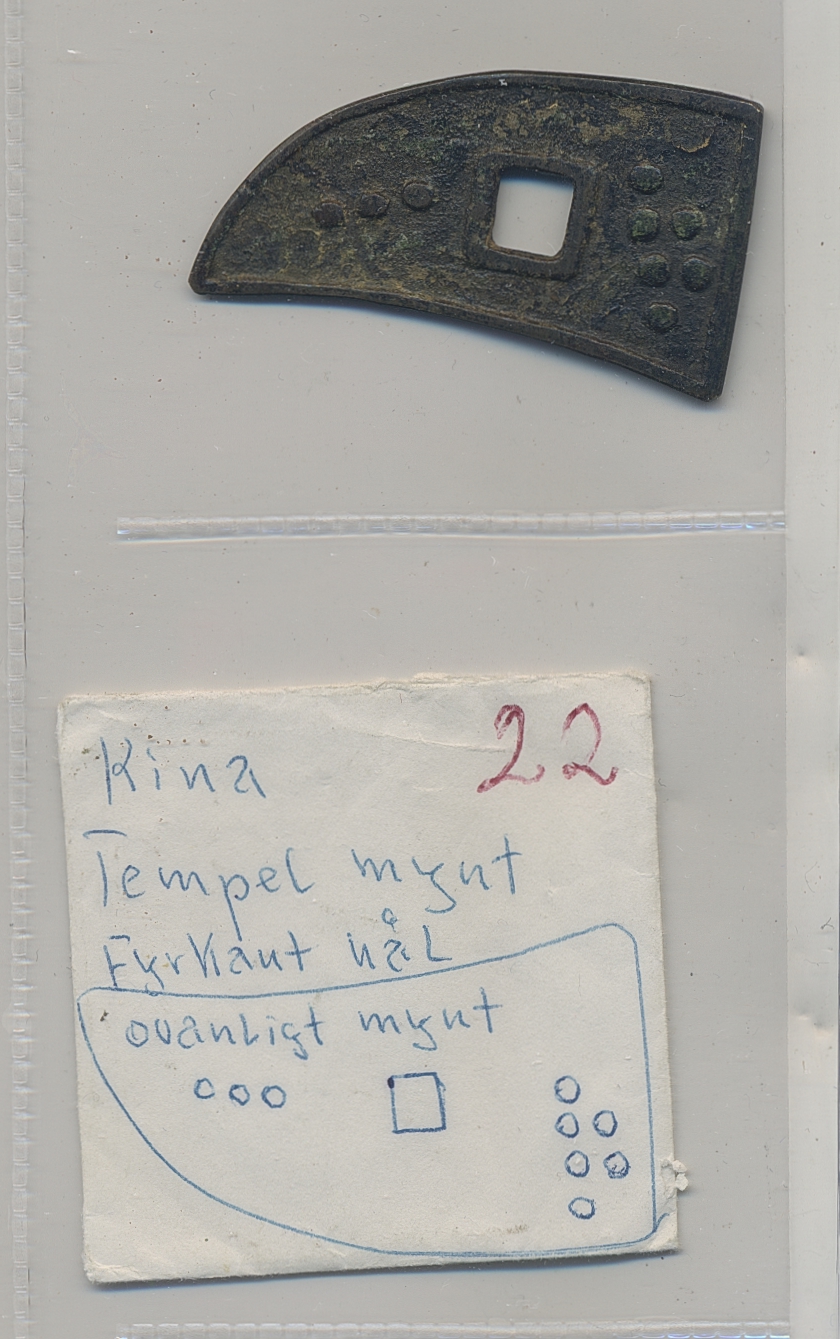 Kina 22
Tempel mynt
Fyrkant hål
ovanligt mynt